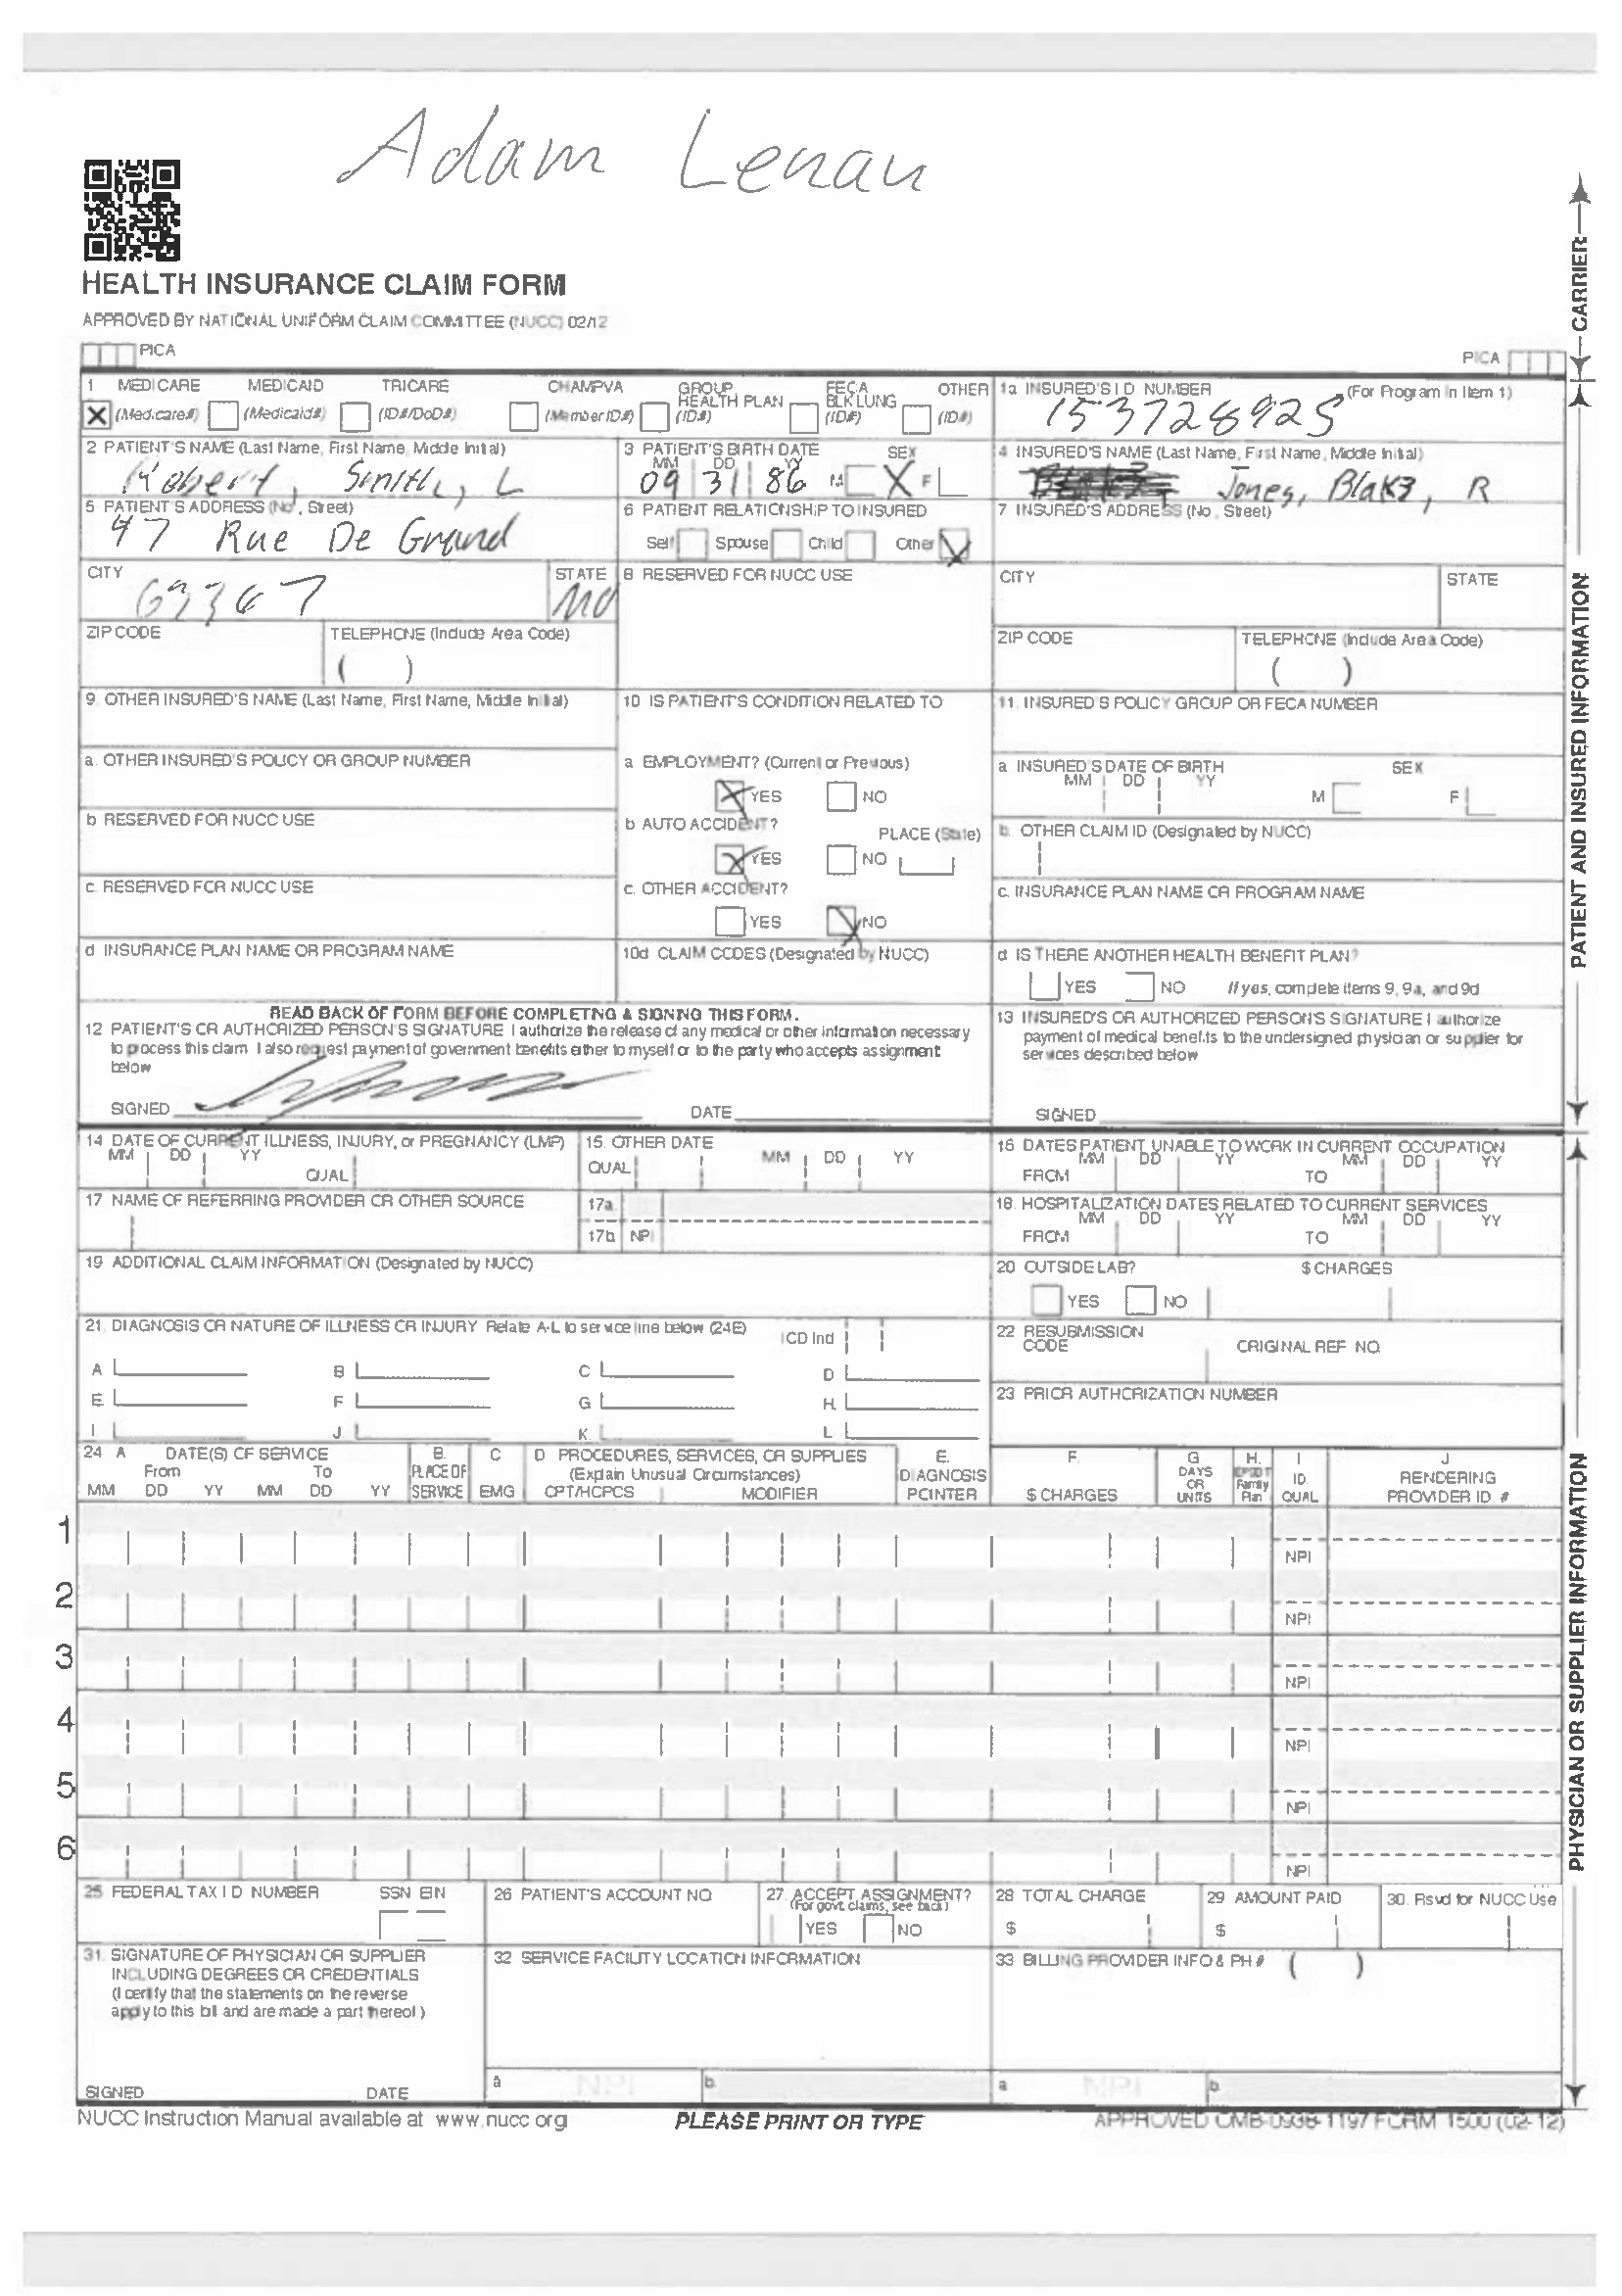 Adam Lenau
HEALTH INSURANCE CLAIM FORM
APPROVED BY NATIONAL UNIFORM CLAIM COMMITTEE (NUCC) 02/12
PICA
PICA
CARRIER
1 MEDICARE MEDICAID TRICARE CHAMPVA GROUP HEALTH PLAN FECA BLK LUNG OTHER
X (Medicare#) (Medicaid#) (ID#/DoD#) (Member ID#) (ID#) (ID#) (ID#)
1a INSURED'S I D NUMBER (For Program in Item 1)
153728925
2 PATIENT'S NAME (Last Name, First Name, Middle Initial)
Robert, Smith, L
3 PATIENT'S BIRTH DATE SEX
MM DD YY
09 31 86 M X F
4 INSURED'S NAME (Last Name, First Name, Middle Initial)
Jones, Blake, R
5 PATIENT'S ADDRESS (No, Street)
47 Rue De Grand
6 PATIENT RELATIONSHIP TO INSURED
Self Spouse Child Other X
7 INSURED'S ADDRESS (No, Street)
CITY STATE
63367 MO
8 RESERVED FOR NUCC USE
CITY STATE
ZIP CODE TELEPHONE (Include Area Code)
( )
ZIP CODE TELEPHONE (Include Area Code)
( )
9 OTHER INSURED'S NAME (Last Name, First Name, Middle Initial)
10 IS PATIENT'S CONDITION RELATED TO
11 INSURED'S POLICY GROUP OR FECA NUMBER
a. OTHER INSURED'S POLICY OR GROUP NUMBER
a EMPLOYMENT? (Current or Previous)
X YES NO
a INSURED'S DATE OF BIRTH SEX
MM DD YY M F
b RESERVED FOR NUCC USE
b AUTO ACCIDENT? PLACE (State)
X YES NO
b. OTHER CLAIM ID (Designated by NUCC)
c. RESERVED FOR NUCC USE
c. OTHER ACCIDENT?
YES X NO
c. INSURANCE PLAN NAME OR PROGRAM NAME
d INSURANCE PLAN NAME OR PROGRAM NAME
10d CLAIM CODES (Designated by NUCC)
d IS THERE ANOTHER HEALTH BENEFIT PLAN?
YES NO If yes, complete items 9, 9a, and 9d
READ BACK OF FORM BEFORE COMPLETING & SIGNING THIS FORM.
12 PATIENT'S OR AUTHORIZED PERSON'S SIGNATURE I authorize the release of any medical or other information necessary
to process this claim I also request payment of government benefits either to myself or to the party who accepts assignment
below
SIGNED DATE
13 INSURED'S OR AUTHORIZED PERSON'S SIGNATURE I authorize
payment of medical benefits to the undersigned physician or supplier for
services described below
SIGNED
PATIENT AND INSURED INFORMATION
14 DATE OF CURRENT ILLNESS, INJURY, or PREGNANCY (LMP)
MM DD YY QUAL
15. OTHER DATE
QUAL MM DD YY
16 DATES PATIENT UNABLE TO WORK IN CURRENT OCCUPATION
MM DD YY MM DD YY
FROM TO
17 NAME OF REFERRING PROVIDER OR OTHER SOURCE
17a
17b NPI
18. HOSPITALIZATION DATES RELATED TO CURRENT SERVICES
MM DD YY MM DD YY
FROM TO
19 ADDITIONAL CLAIM INFORMATION (Designated by NUCC)
20 OUTSIDE LAB? $ CHARGES
YES NO
21. DIAGNOSIS OR NATURE OF ILLNESS OR INJURY Relate A-L to service line below (24E) ICD Ind
A B C D
E. F G H.
I J K. L
22 RESUBMISSION CODE ORIGINAL REF NO.
23 PRIOR AUTHORIZATION NUMBER
24 A DATE(S) OF SERVICE B. C D PROCEDURES, SERVICES, OR SUPPLIES E. F. G H. I J
From To PLACE OF (Explain Unusual Circumstances) DIAGNOSIS DAYS OR EPSDT Family ID. RENDERING
MM DD YY MM DD YY SERVICE EMG CPT/HCPCS MODIFIER POINTER $ CHARGES UNITS Plan QUAL PROVIDER ID #
1 NPI
2 NPI
3 NPI
4 NPI
5 NPI
6 NPI
25 FEDERAL TAX I D NUMBER SSN EIN
26 PATIENT'S ACCOUNT NO
27 ACCEPT ASSIGNMENT?
(For govt claims, see back)
YES NO
28 TOTAL CHARGE
$
29 AMOUNT PAID
$
30. Rsvd for NUCC Use
31. SIGNATURE OF PHYSICIAN OR SUPPLIER
INCLUDING DEGREES OR CREDENTIALS
(I certify that the statements on the reverse
apply to this bill and are made a part thereof)
SIGNED DATE
32 SERVICE FACILITY LOCATION INFORMATION
a NPI b.
33 BILLING PROVIDER INFO & PH # ( )
a NPI b
PHYSICIAN OR SUPPLIER INFORMATION
NUCC Instruction Manual available at www.nucc org
PLEASE PRINT OR TYPE
APPROVED OMB-0938-1197 FORM 1500 (02-12)